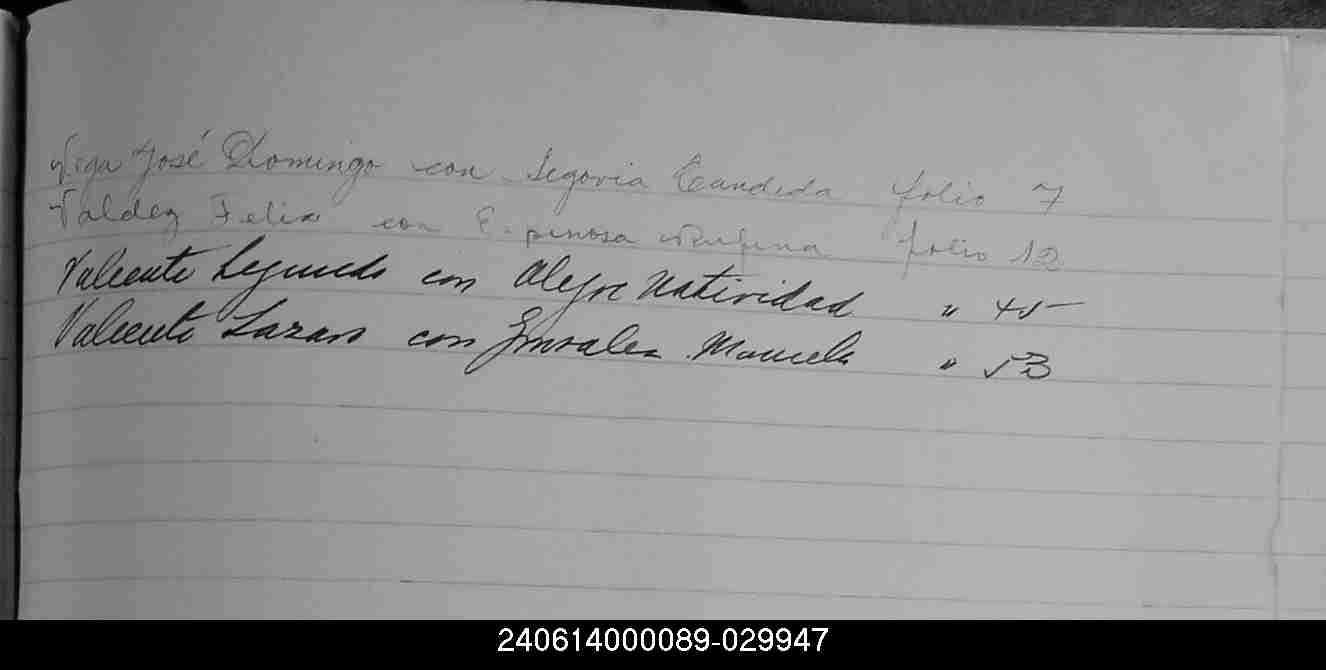 Vega José Domingo con Segovia Candida folio 7
Valdez Felix con Espinosa Rufina folio 12
Valiente Segundo con Alegre Natividad " 45
Valiente Lazaro con Gonzalez Manuela " 53
240614000089-029947